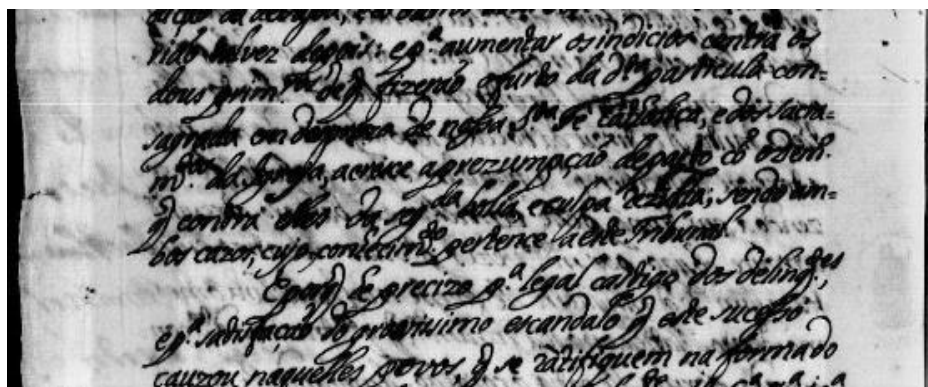 não talvez depois: e p.ª aumentar os indicios contra os
dous prim.ros de q̃ fizerão o furto da d.ta particula con=
sagrada em desprezo de nossa S.ta Fé Catholica, e dos sacra=
m.tos da Igreja, acresce a prezumpção de
q̃ contra elles da seg.da bolsa, e culpa rezulta; sendo am=
bos cazos, cujo conhecim.to pertence a este Tribunal.
E porq̃ he precizo p.ª legal castigo dos delinq.tes,
e p.ª satisfação do gravissimo escandalo q̃ este sucesso
cauzou naquelles povos, q̃ se ratifiquem na forma do